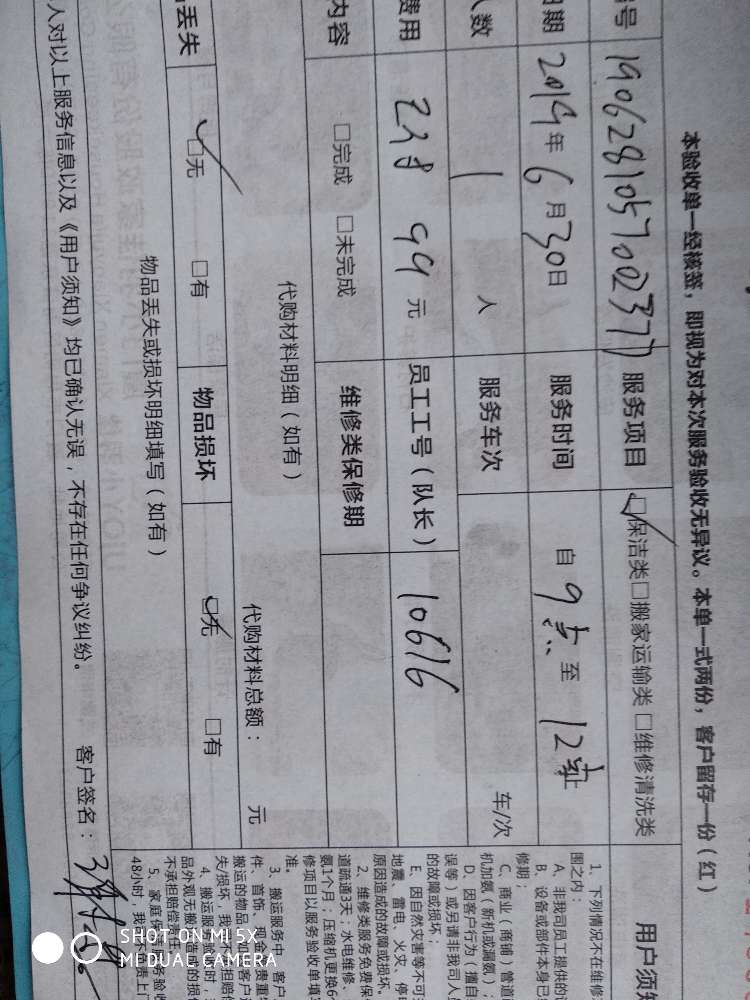 本验收单一经核签，即视为对本次服务验收无异议。本单一式两份，客户留存一份（红）
号 190628105700237 服务项目 保洁类 □搬家运输类 □维修清洗类 用户须
期 2019年6月30日 服务时间 自 9点 至 12点
人数 1 人 服务车次 车/次
费用 238 99 元 员工工号（队长） 10616
内容 □完成 □未完成 维修类保修期
代购材料明细（如有） 代购材料总额： 元
丢失 □无 □有 物品损坏 □无 □有
物品丢失或损坏明细填写（如有）
人对以上服务信息以及《用户须知》均已确认无误，不存在任何争议纠纷。 客户签名：
1、下列情况不在维修
围之内：
A、非我司员工提供的
B、设备或部件本身已
修期；
C、商业（商铺）管道
机加氨（新机或漏氨）；
D、因客户行为（擅自
误等）或另请非我司人员
的故障或损坏；
E、因自然灾害等不可
地震、雷电、火灾、停电
原因造成的故障或损坏。
2、维修类服务免费保
道疏通3天；水电维修、
氨1个月；压缩机更换6
修项目以服务验收单填写
准。
3、搬运服务中，客户
件、首饰、现金等贵重物
搬运的物品，如因客户
失/损坏，我司不承担赔偿
4、搬运服务
品外观无搬运造成的损
不承担赔偿责任
5、家庭保洁
48小时，我
SHOT ON MI 5X
MEDUAL CAMERA